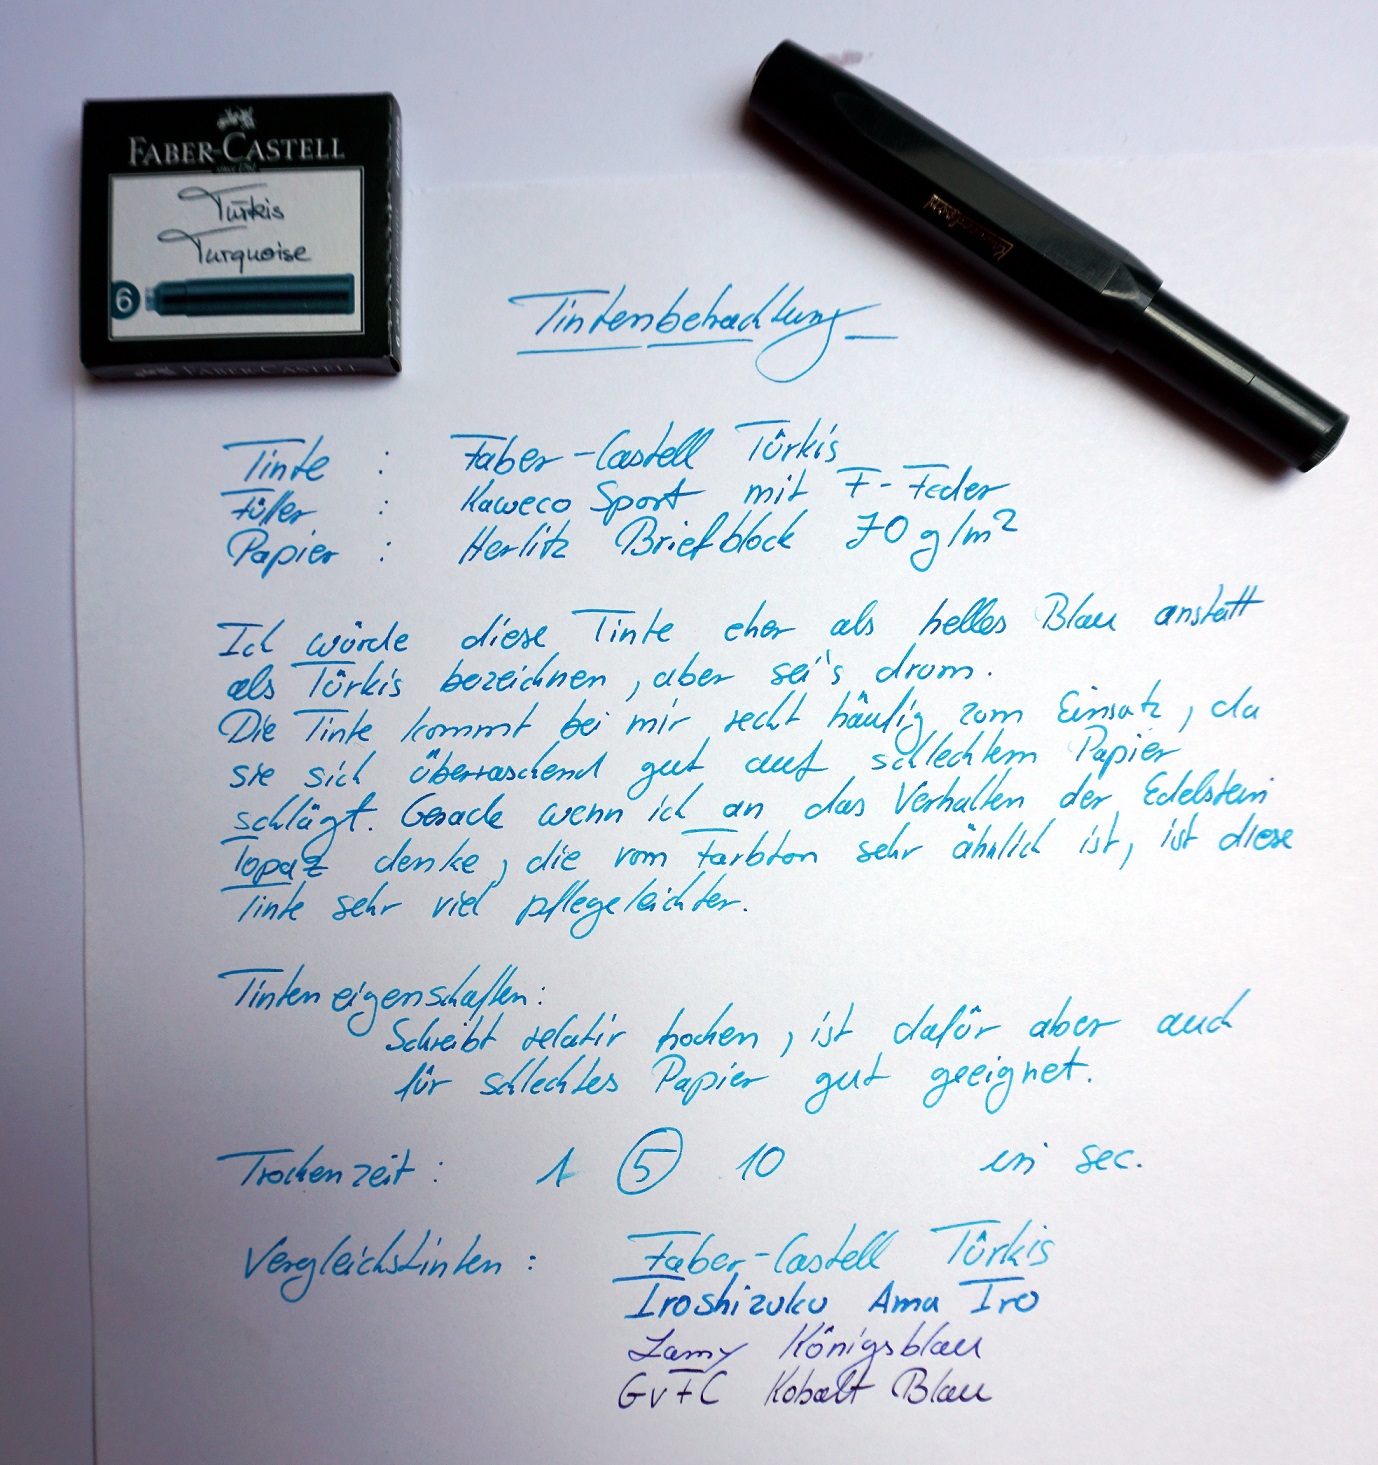 FABER-CASTELL
since 1761
Türkis
Turquoise
6
FABER-CASTELL
Kaweco Sport
Tintenbetrachtung
Tinte : Faber-Castell Türkis
Füller : Kaweco Sport mit F-Feder
Papier : Herlitz Briefblock 70 g/m²
Ich würde diese Tinte eher als helles Blau anstatt
als Türkis bezeichnen, aber sei's drum.
Die Tinte kommt bei mir recht häufig zum Einsatz, da
sie sich überraschend gut auf schlechtem Papier
schlägt. Gerade wenn ich an das Verhalten der Edelstein
Topaz denke, die vom Farbton sehr ähnlich ist, ist diese
Tinte sehr viel pflegeleichter.
Tinteneigenschaften:
Schreibt relativ trocken, ist dafür aber auch
für schlechtes Papier gut geeignet.
Trockenzeit : 1 5 10 in sec.
Vergleichstinten : Faber-Castell Türkis
Iroshizuku Ama Iro
Lamy Königsblau
GvFC Kobalt Blau